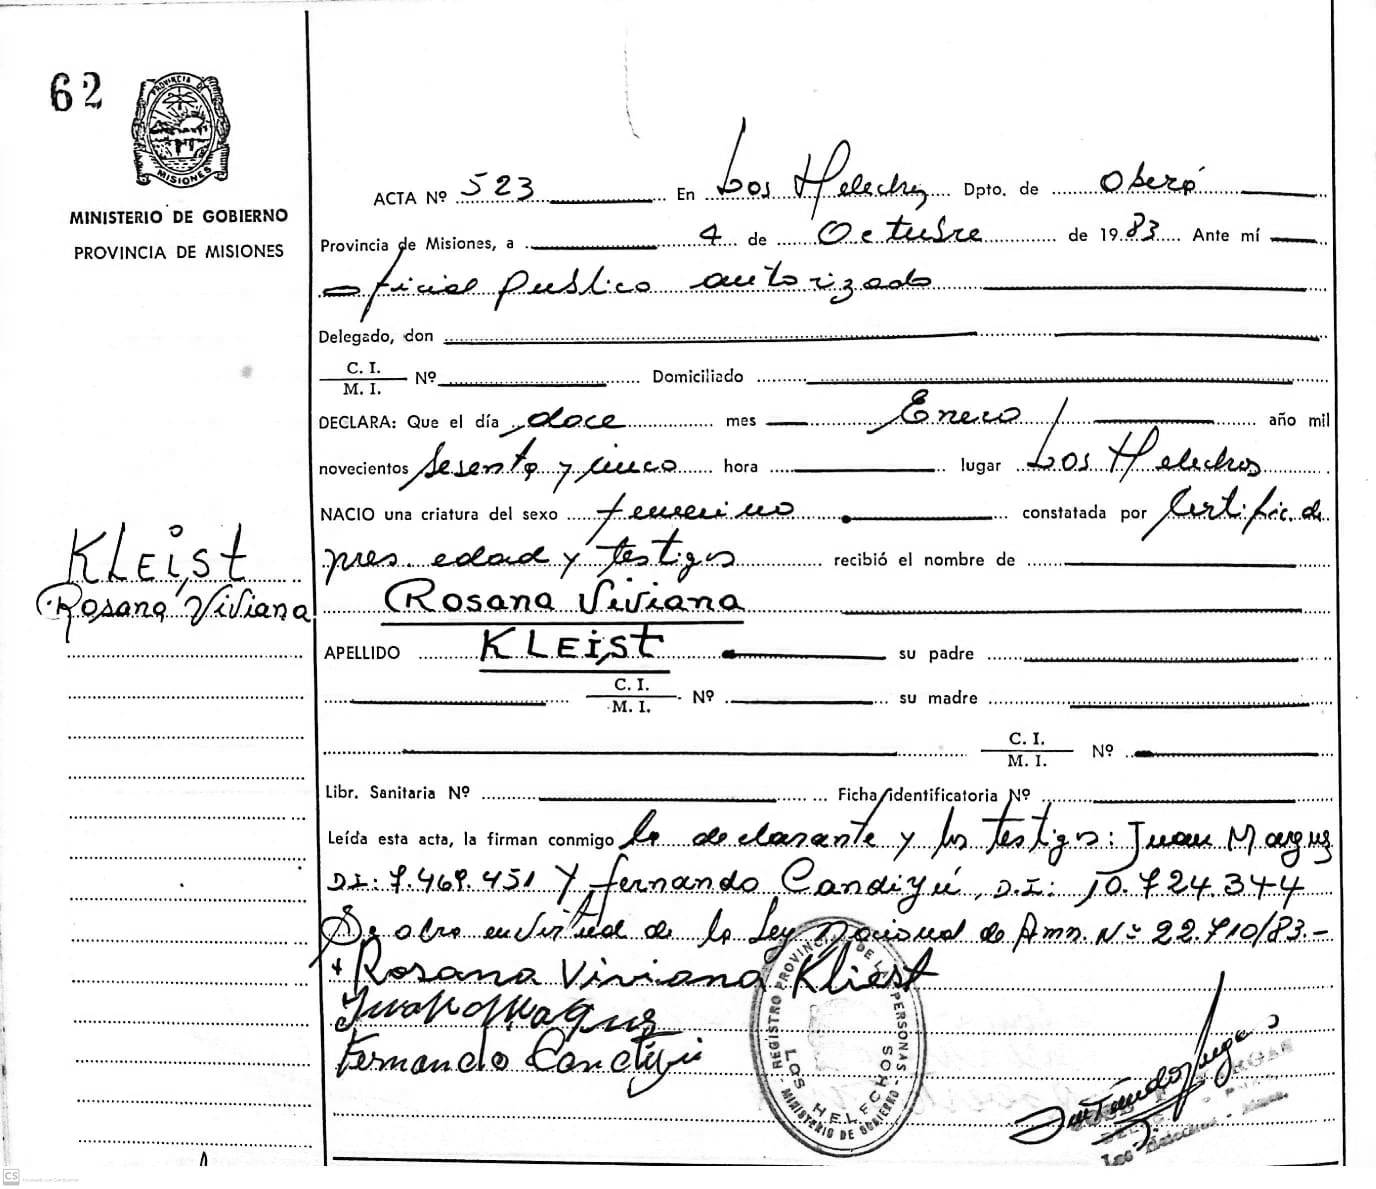 62
PROVINCIA DE
MISIONES
MINISTERIO DE GOBIERNO
PROVINCIA DE MISIONES
ACTA Nº 523 En Los Helechos Dpto. de Oberá
Provincia de Misiones, a 4 de Octubre de 1983 Ante mí
oficial publico autorizado
Delegado, don
C. I.
M. I. Nº Domiciliado
DECLARA: Que el día doce mes Enero año mil
novecientos sesenta y cinco hora lugar Los Helechos
NACIO una criatura del sexo femenino constatada por Certific. de
pres. edad y testigos recibió el nombre de
Rosana Viviana
KLEIST
Rosana Viviana
APELLIDO KLEIST su padre
C. I.
M. I. Nº su madre
C. I.
M. I. Nº
Libr. Sanitaria Nº Ficha identificatoria Nº
Leída esta acta, la firman conmigo la declarante y los testigos: Juan Marquz
D.I: 7.469.451 Y fernando Candiyú, D.I: 10.724.344
Se abre en virtud de la Ley Nacional de Amn. Nº 22.710/83.-
+ Rosana Viviana Kliest
Fernando Candiyú
REGISTRO PROVINCIAL DE LAS PERSONAS
LOS HELECHOS
- MINISTERIO DE GOBIERNO -
Los Helechos
CS